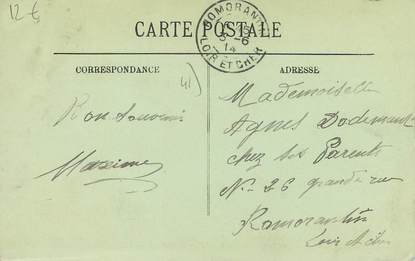 12 €
CARTE POSTALE
ROMORANTIN
5-6
14
LOIR ET CHER
CORRESPONDANCE
ADRESSE
41)
Bon Souvenir
Maxime
Mademoiselle
Agnes
chez ses Parents
N° 26 grande rue
Romorantin
Loir et cher